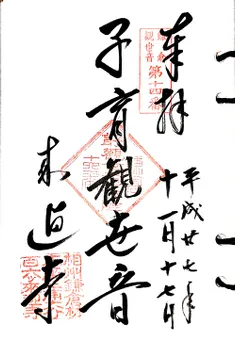 奉拝
平成廿七年
十一月十七日
鎌倉
観世音
第十四番
子育觀世音
来迎寺
相州鎌倉材